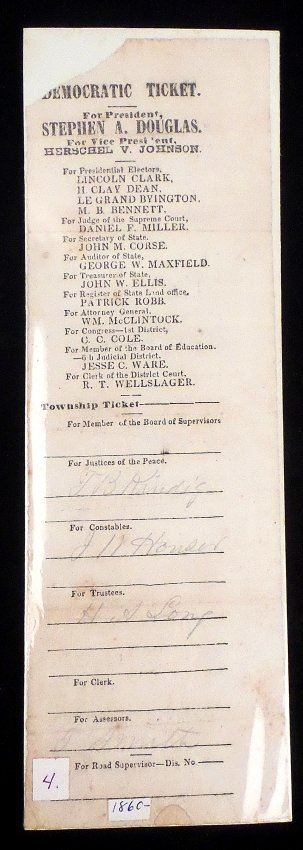 DEMOCRATIC TICKET.
For President,
STEPHEN A. DOUGLAS.
For Vice President,
HERSCHEL V. JOHNSON.
For Presidential Electors,
LINCOLN CLARK,
H CLAY DEAN,
LE GRAND BYINGTON.
M. B. BENNETT.
For Judge of the Supreme Court,
DANIEL F. MILLER.
For Secretary of State,
JOHN M. CORSE.
For Auditor of State,
GEORGE W. MAXFIELD.
For Treasurer of State,
JOHN W. ELLIS.
For Register of State Land office,
PATRICK ROBB.
For Attorney General.
WM. McCLINTOCK.
For Congress—1st District,
C. C. COLE.
For Member of the Board of Education.
—6th Judicial District.
JESSE C. WARE.
For Clerk of the District Court,
R. T. WELLSLAGER.
Township Ticket
For Member of the Board of Supervisors
For Justices of the Peace.
For Constables.
For Trustees.
Long
For Clerk.
For Assessors.
For Road Supervisor—Dis. No
4.
1860-